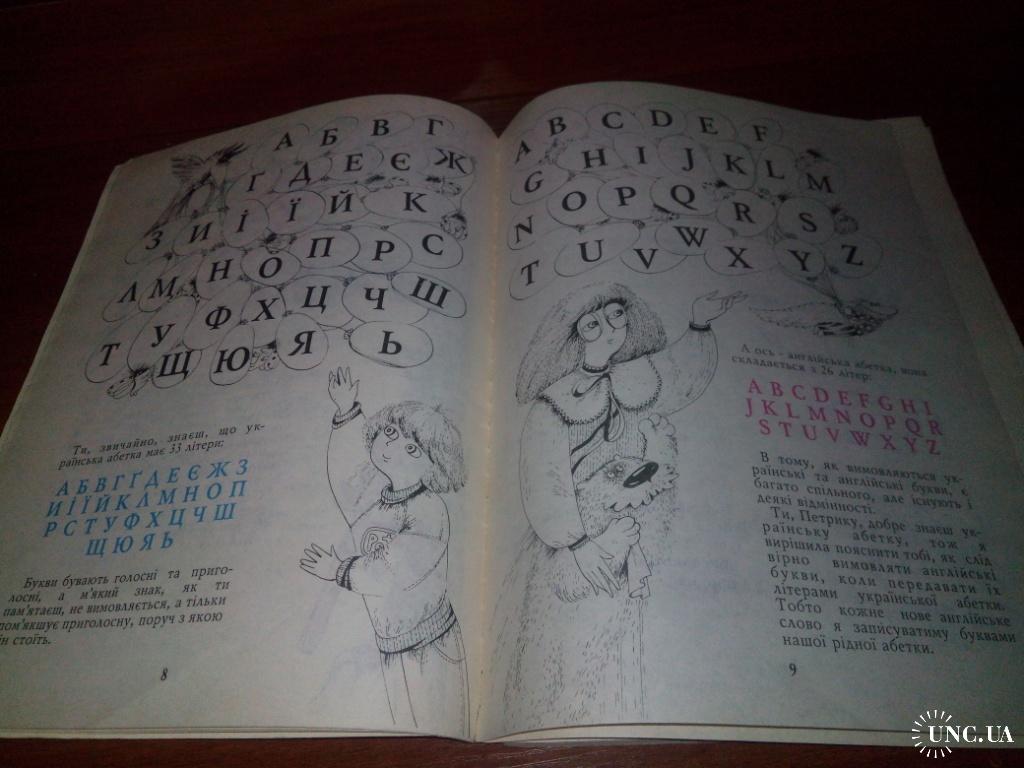 А Б В Г
Ґ Д Е Є Ж
З И І Ї Й К
Л М Н О П Р С
Т У Ф Х Ц Ч Ш
Щ Ю Я Ь
Ти, звичайно, знаєш, що ук-
раїнська абетка має 33 літери:
А Б В Г Ґ Д Е Є Ж З
И І Ї Й К Л М Н О П
Р С Т У Ф Х Ц Ч Ш
Щ Ю Я Ь
Букви бувають голосні та приго-
лосні, а м'який знак, як ти
пам'ятаєш, не вимовляється, а тільки
пом'якшує приголосну, поруч з якою
він стоїть.
8
A B C D E F
G H I J K L M
N O P Q R S
T U V W X Y Z
А ось - англійська абетка, вона
складається з 26 літер:
A B C D E F G H I
J K L M N O P Q R
S T U V W X Y Z
В тому, як вимовляються ук-
раїнські та англійські букви, є
багато спільного, але існують і
деякі відмінності.
Ти, Петрику, добре знаєш ук-
раїнську абетку, тож я
вирішила пояснити тобі, як слід
вірно вимовляти англійські
букви, коли передавати їх
літерами української абетки.
Тобто кожне нове англійське
слово я записуватиму буквами
нашої рідної абетки.
9
UNC.UA